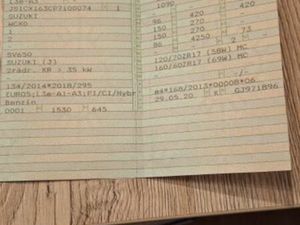 L3e-A3 1090 - 420
JS1CX163CP7100074 1 - 420
SUZUKI 96
WCX0 150 270
1 150 270
2 86 4250 2 73
SV650
SUZUKI (J) 120/70ZR17 (58W) MC
2rädr. KR > 35 kW 160/60ZR17 (69W) MC
134/2014*2018/295 -/-
EURO5;L3e-A1-A3;PI/CI/Hybr e4*168/2013*00008*06
Benzin 29.05.20 K GJ971896
0001 1530 645